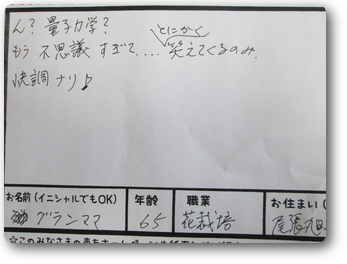 ん？量子力学？
もう 不思議 すぎて....とにかく笑えてくるのみ.
快調ナリ♪
お名前(イニシャルでもOK)
年齢
職業
お住まい(
グランママ
65
花栽培
尾張旭